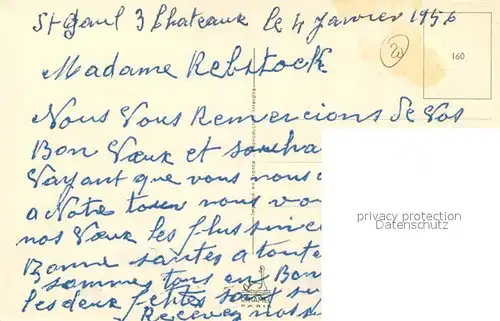 St Paul 3 Chateaux le 4 Janvier 1956
20
160
Madame Rebstock
Nous Vous Remercions de Vos
Bon Vœux et souha
Vayant que vous nous
a Notre tour nous vo
nos Vœux les plus since
Bonne santes a toute
sommes tous en Bon
les deux petites sont su
Recevez nos
privacy protection
Datenschutz
PARIS